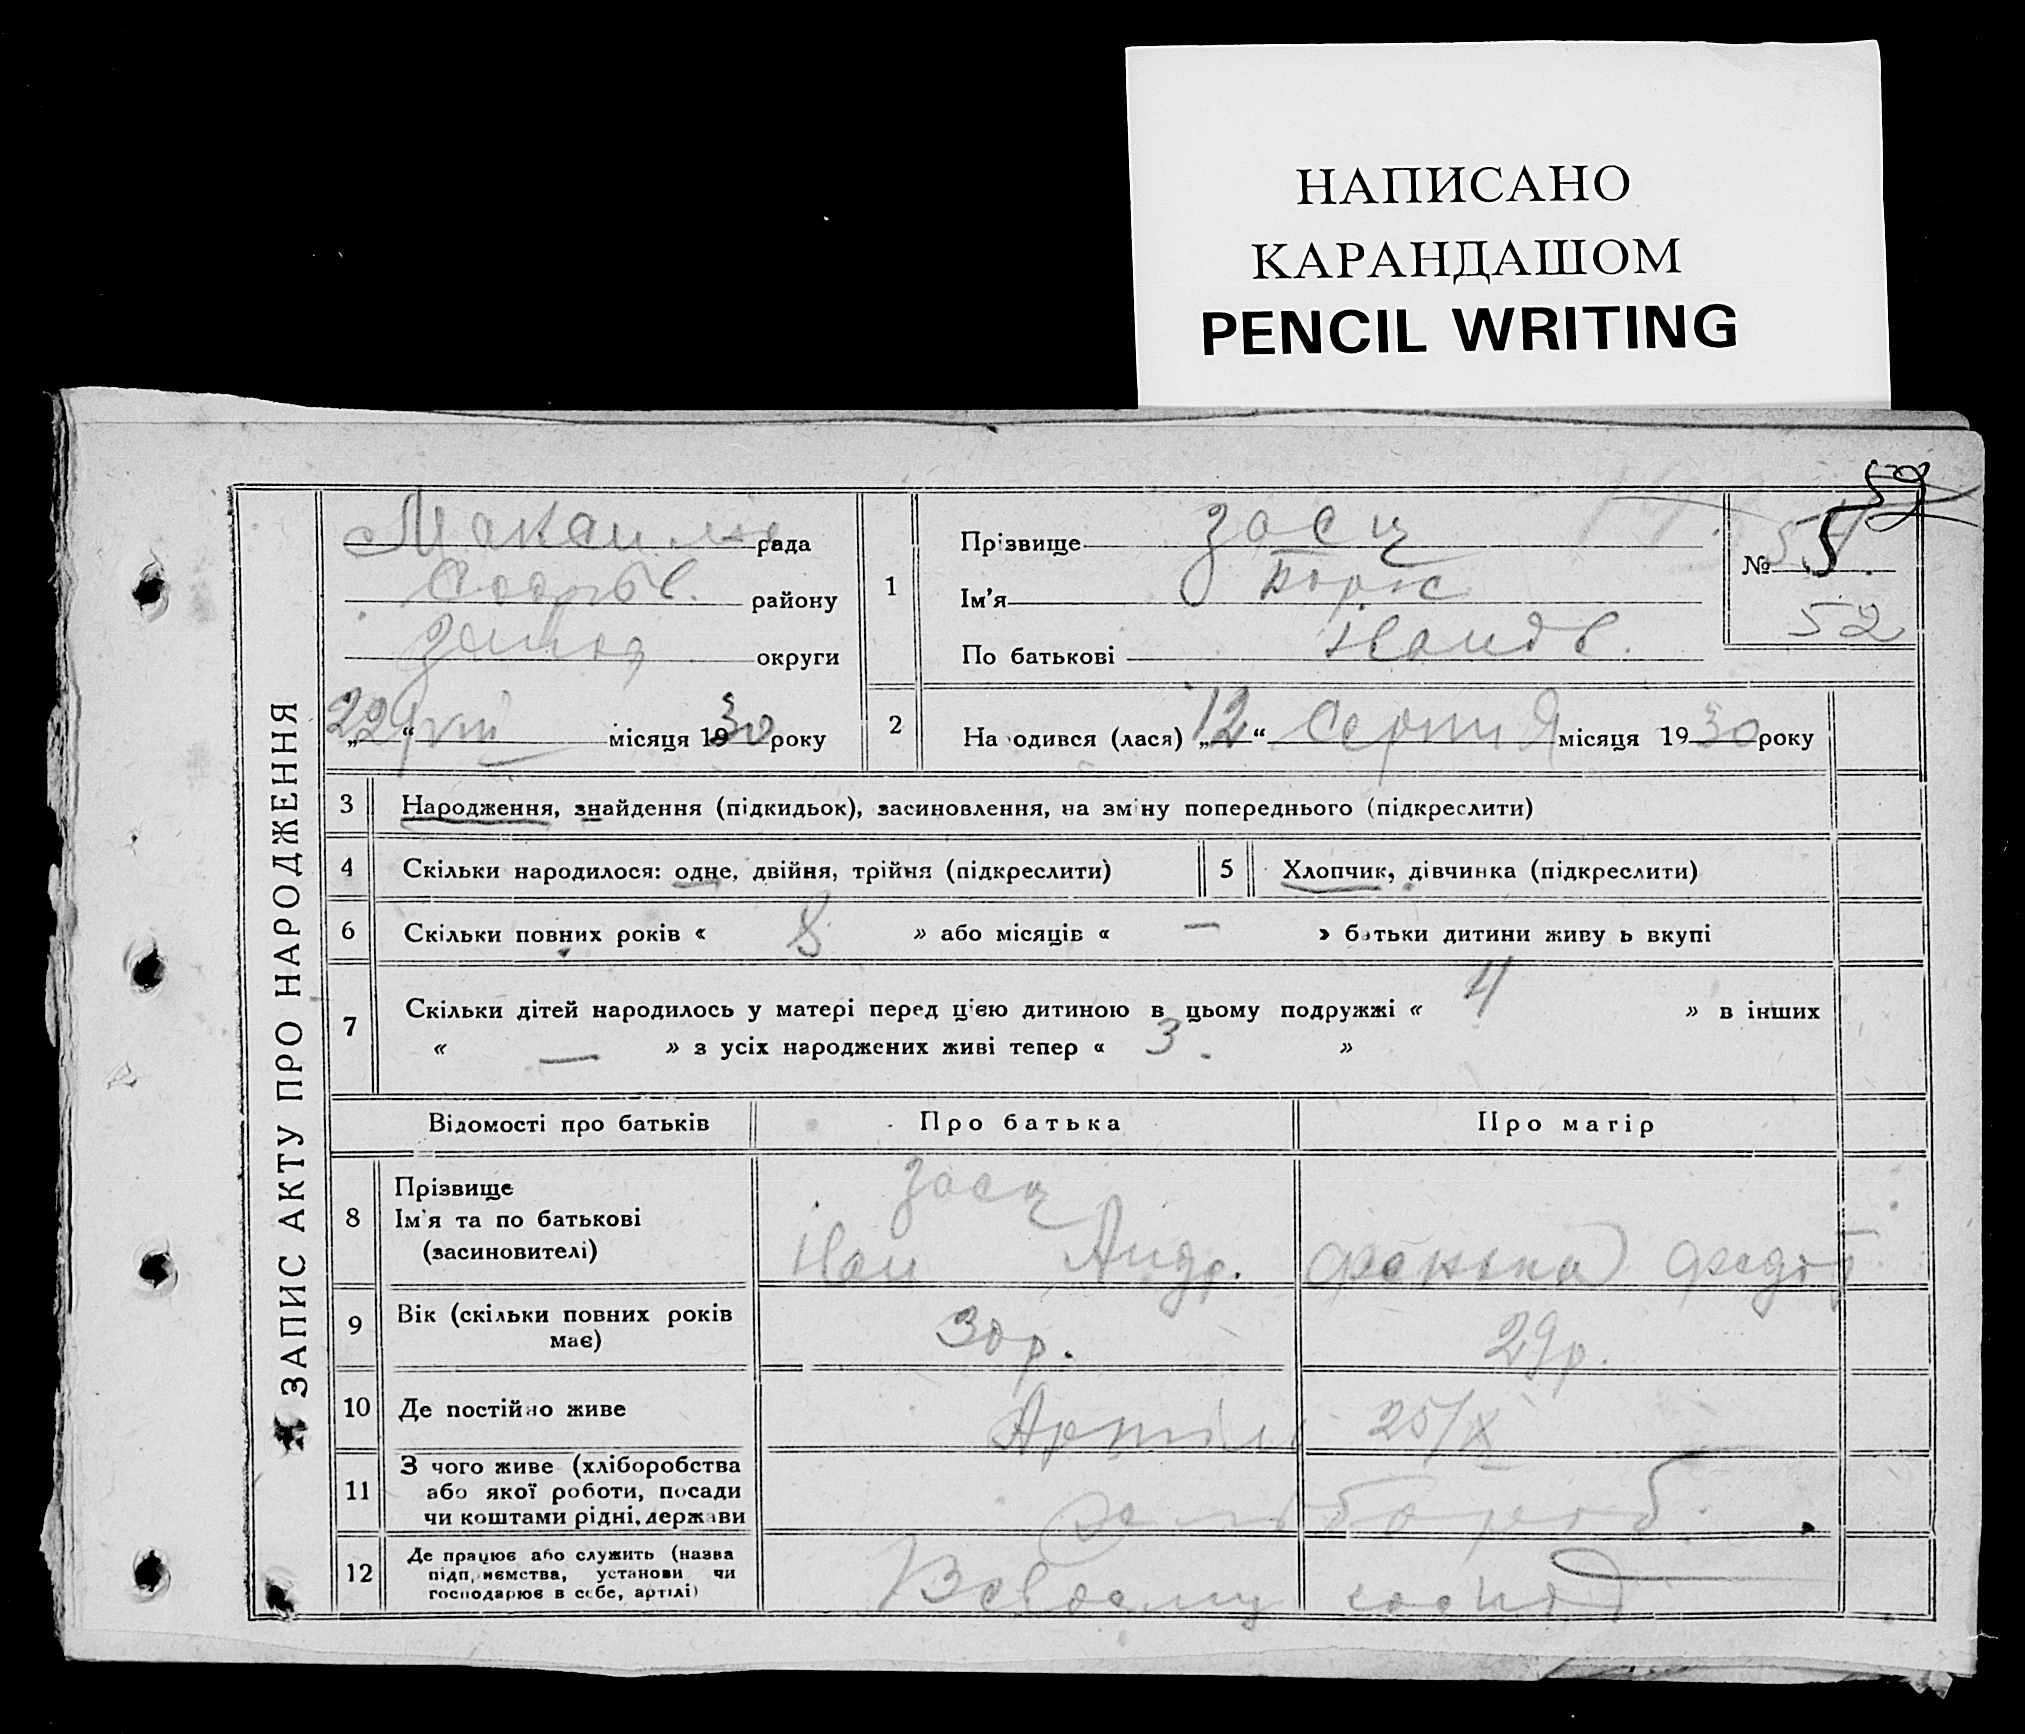 НАПИСАНО
КАРАНДАШОМ
PENCIL WRITING
59
ЗАПИС АКТУ ПРО НАРОДЖЕННЯ
рада
району
округи
„22“ VIII місяця 1930 року
1
Прізвище Заєц
Ім'я Борис
По батькові
№ 54
52
2
Народився (лася) „12“ Серпня місяця 1930 року
3 Народження, знайдення (підкидьок), засиновлення, на зміну попереднього (підкреслити)
4 Скільки народилося: одне, двійня, трійня (підкреслити)
5 Хлопчик, дівчинка (підкреслити)
6 Скільки повних років « 8 » або місяців « — » батьки дитини живуть вкупі
7 Скільки дітей народилось у матері перед цією дитиною в цьому подружжі « 4 » в інших
« — » з усіх народжених живі тепер « 3. »
Відомості про батьків
Про батька
Про матір
8 Прізвище
Ім'я та по батькові
(засиновителі)
Заєц
Андр.
Федот
9 Вік (скільки повних років
має)
30 р.
29 р.
10 Де постійно живе
Артіль 25/X
11 З чого живе (хліборобства
або якої роботи, посади
чи коштами рідні, держави
12 Де працює або служить (назва
підприємства, установи чи
господарює в себе, артілі)
В своєму господ